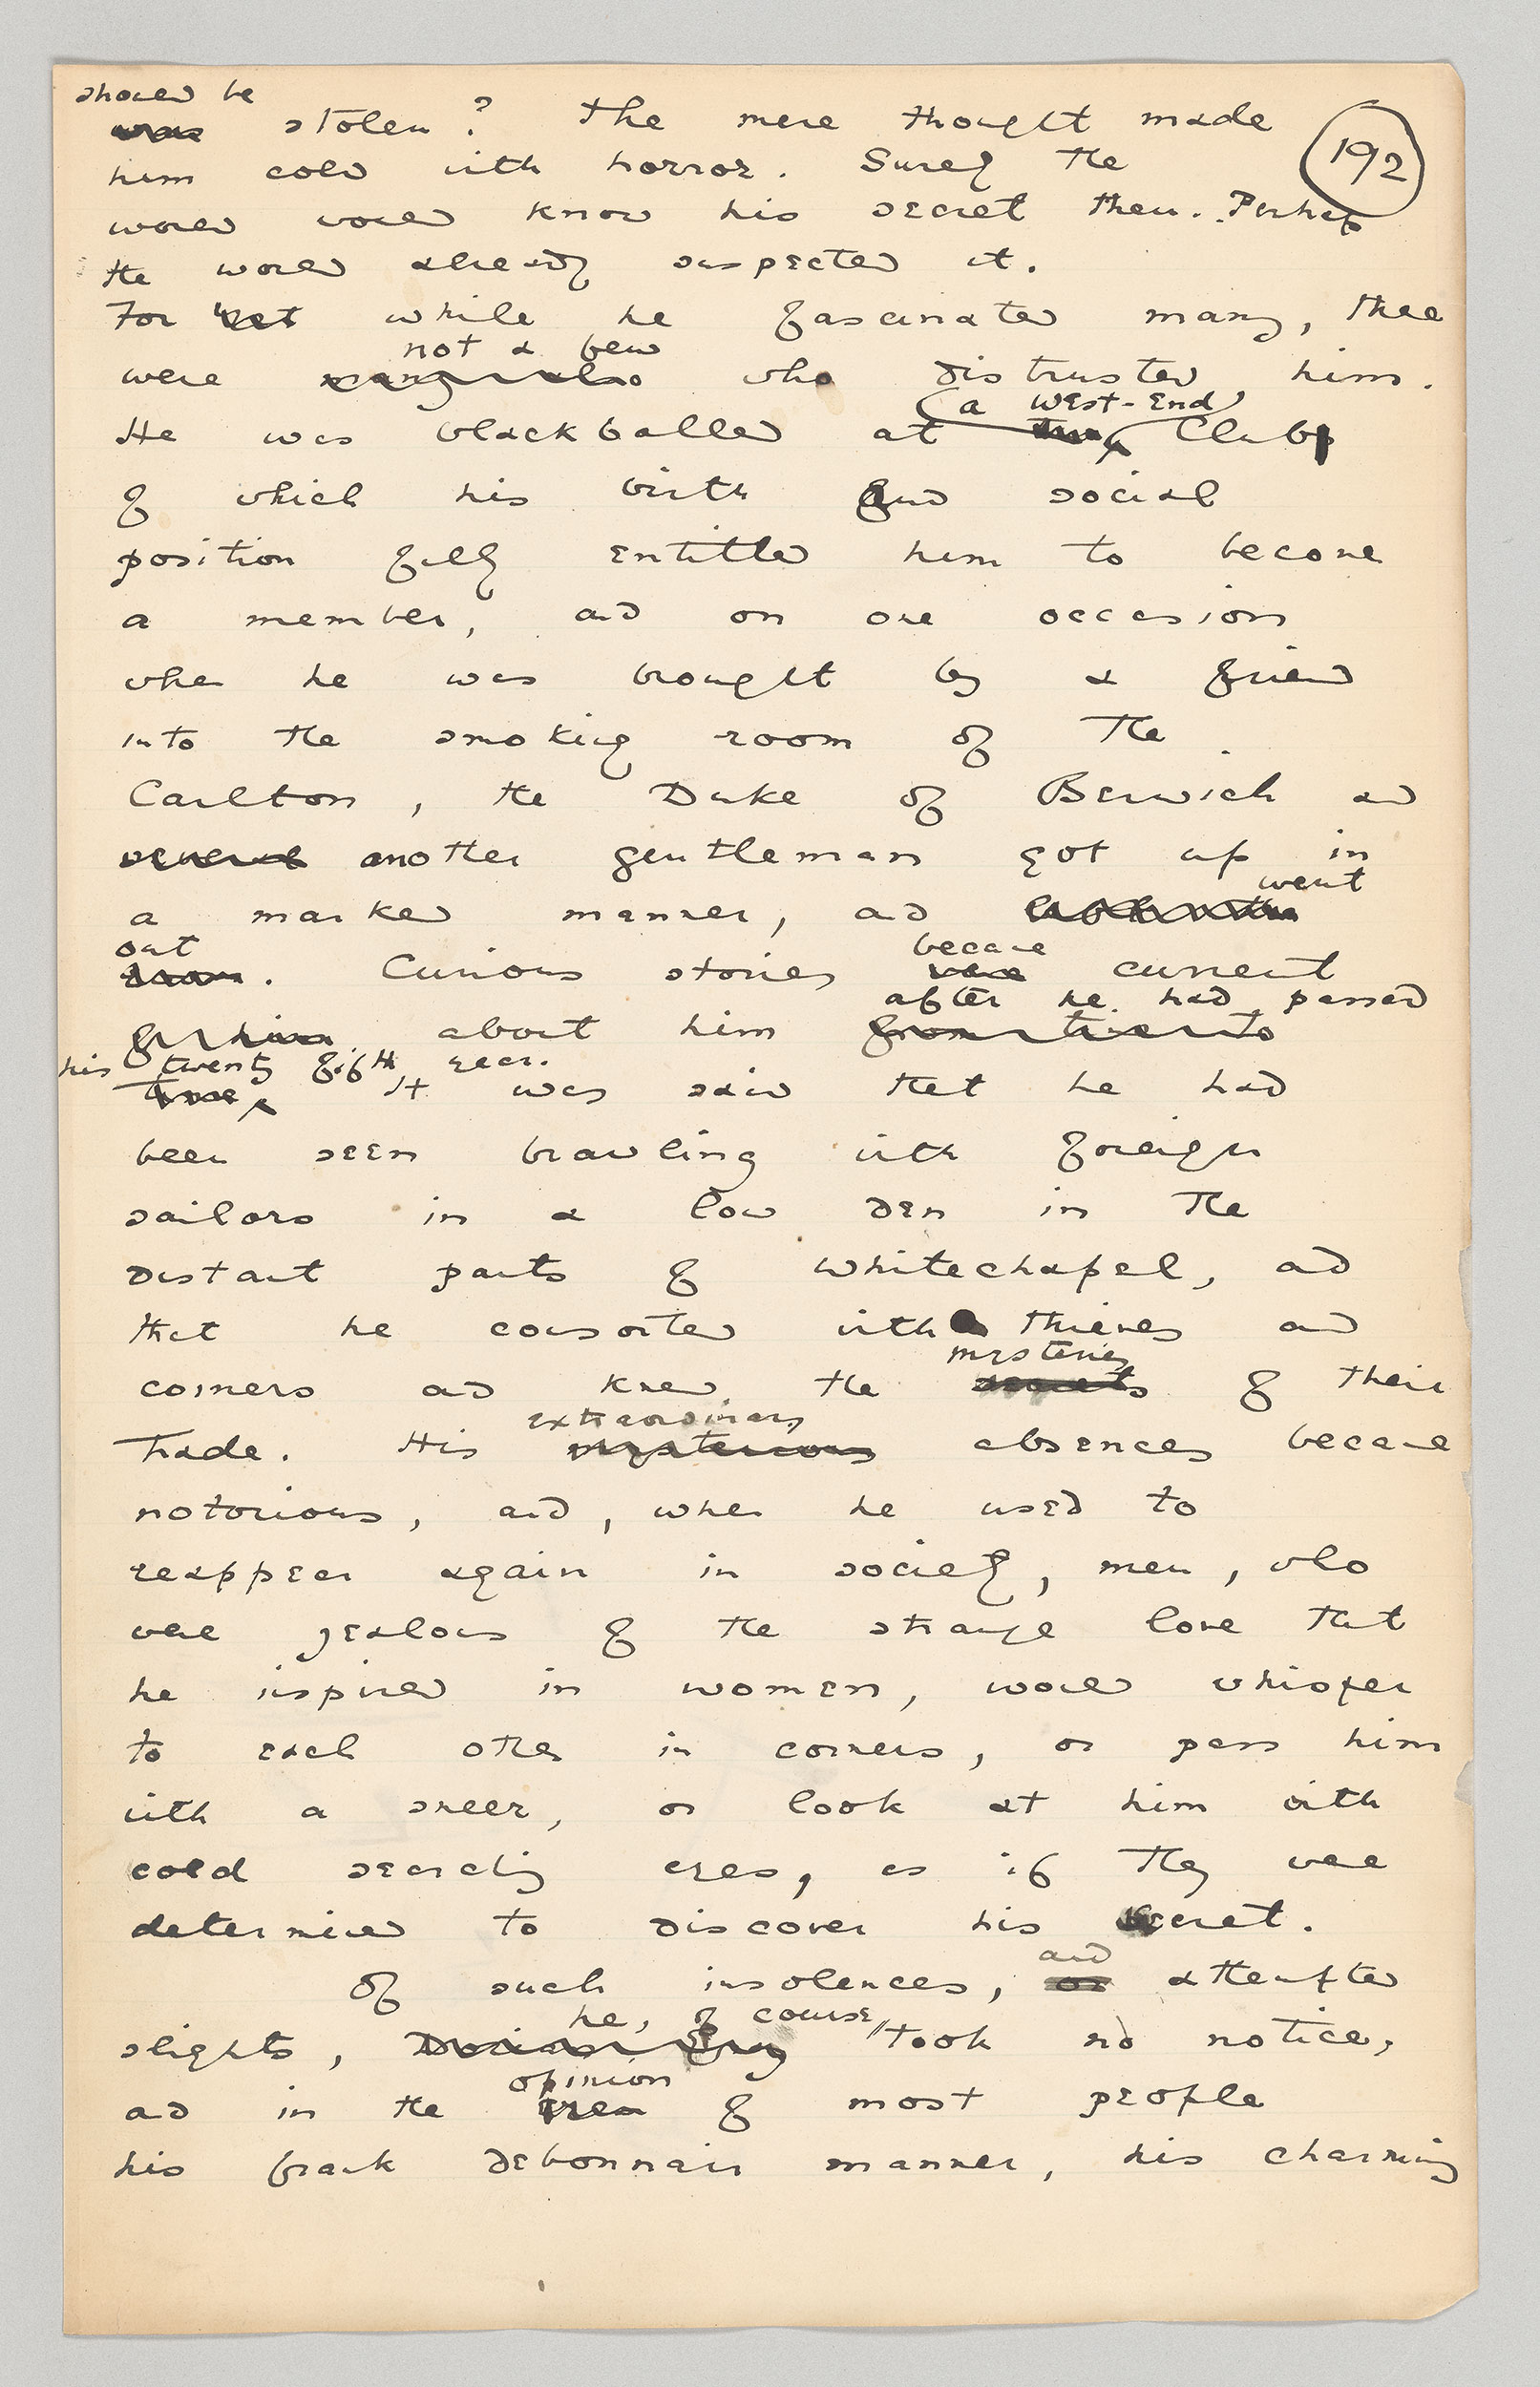 should be
was stolen? The mere thought made
192
him cold with horror. Surely the
world would know his secret then. Perhaps
the world already suspected it.
For yet while he fascinated many, there
not a few
were many also who distrusted him.
(a West-End)
He was blackballed at two Clubs
of which his birth and social
position fully entitled him to become
a member, and on one occasion
when he was brought by a friend
into the smoking room of the
Carlton, the Duke of Berwick and
several another gentleman got up in
went
a marked manner, and
out became
room. Curious stories were current
after he had passed
about him from time to
his twenty fifth year.
time. It was said that he had
been seen brawling with foreign
sailors in a low den in the
distant parts of Whitechapel, and
that he consorted with thieves and
mysteries
coiners and knew the secrets of their
extraordinary
trade. His mysterious absences became
notorious, and, when he used to
reappear again in society, men, who
were jealous of the strange love that
he inspired in women, would whisper
to each other in corners, or pass him
with a sneer, or look at him with
cold searching eyes, as if they were
determined to discover his secret.
and
Of such insolences, or attempted
he, of course,
slights, Dorian Gray took no notice,
opinion
and in the eyes of most people
his frank debonnair manner, his charming